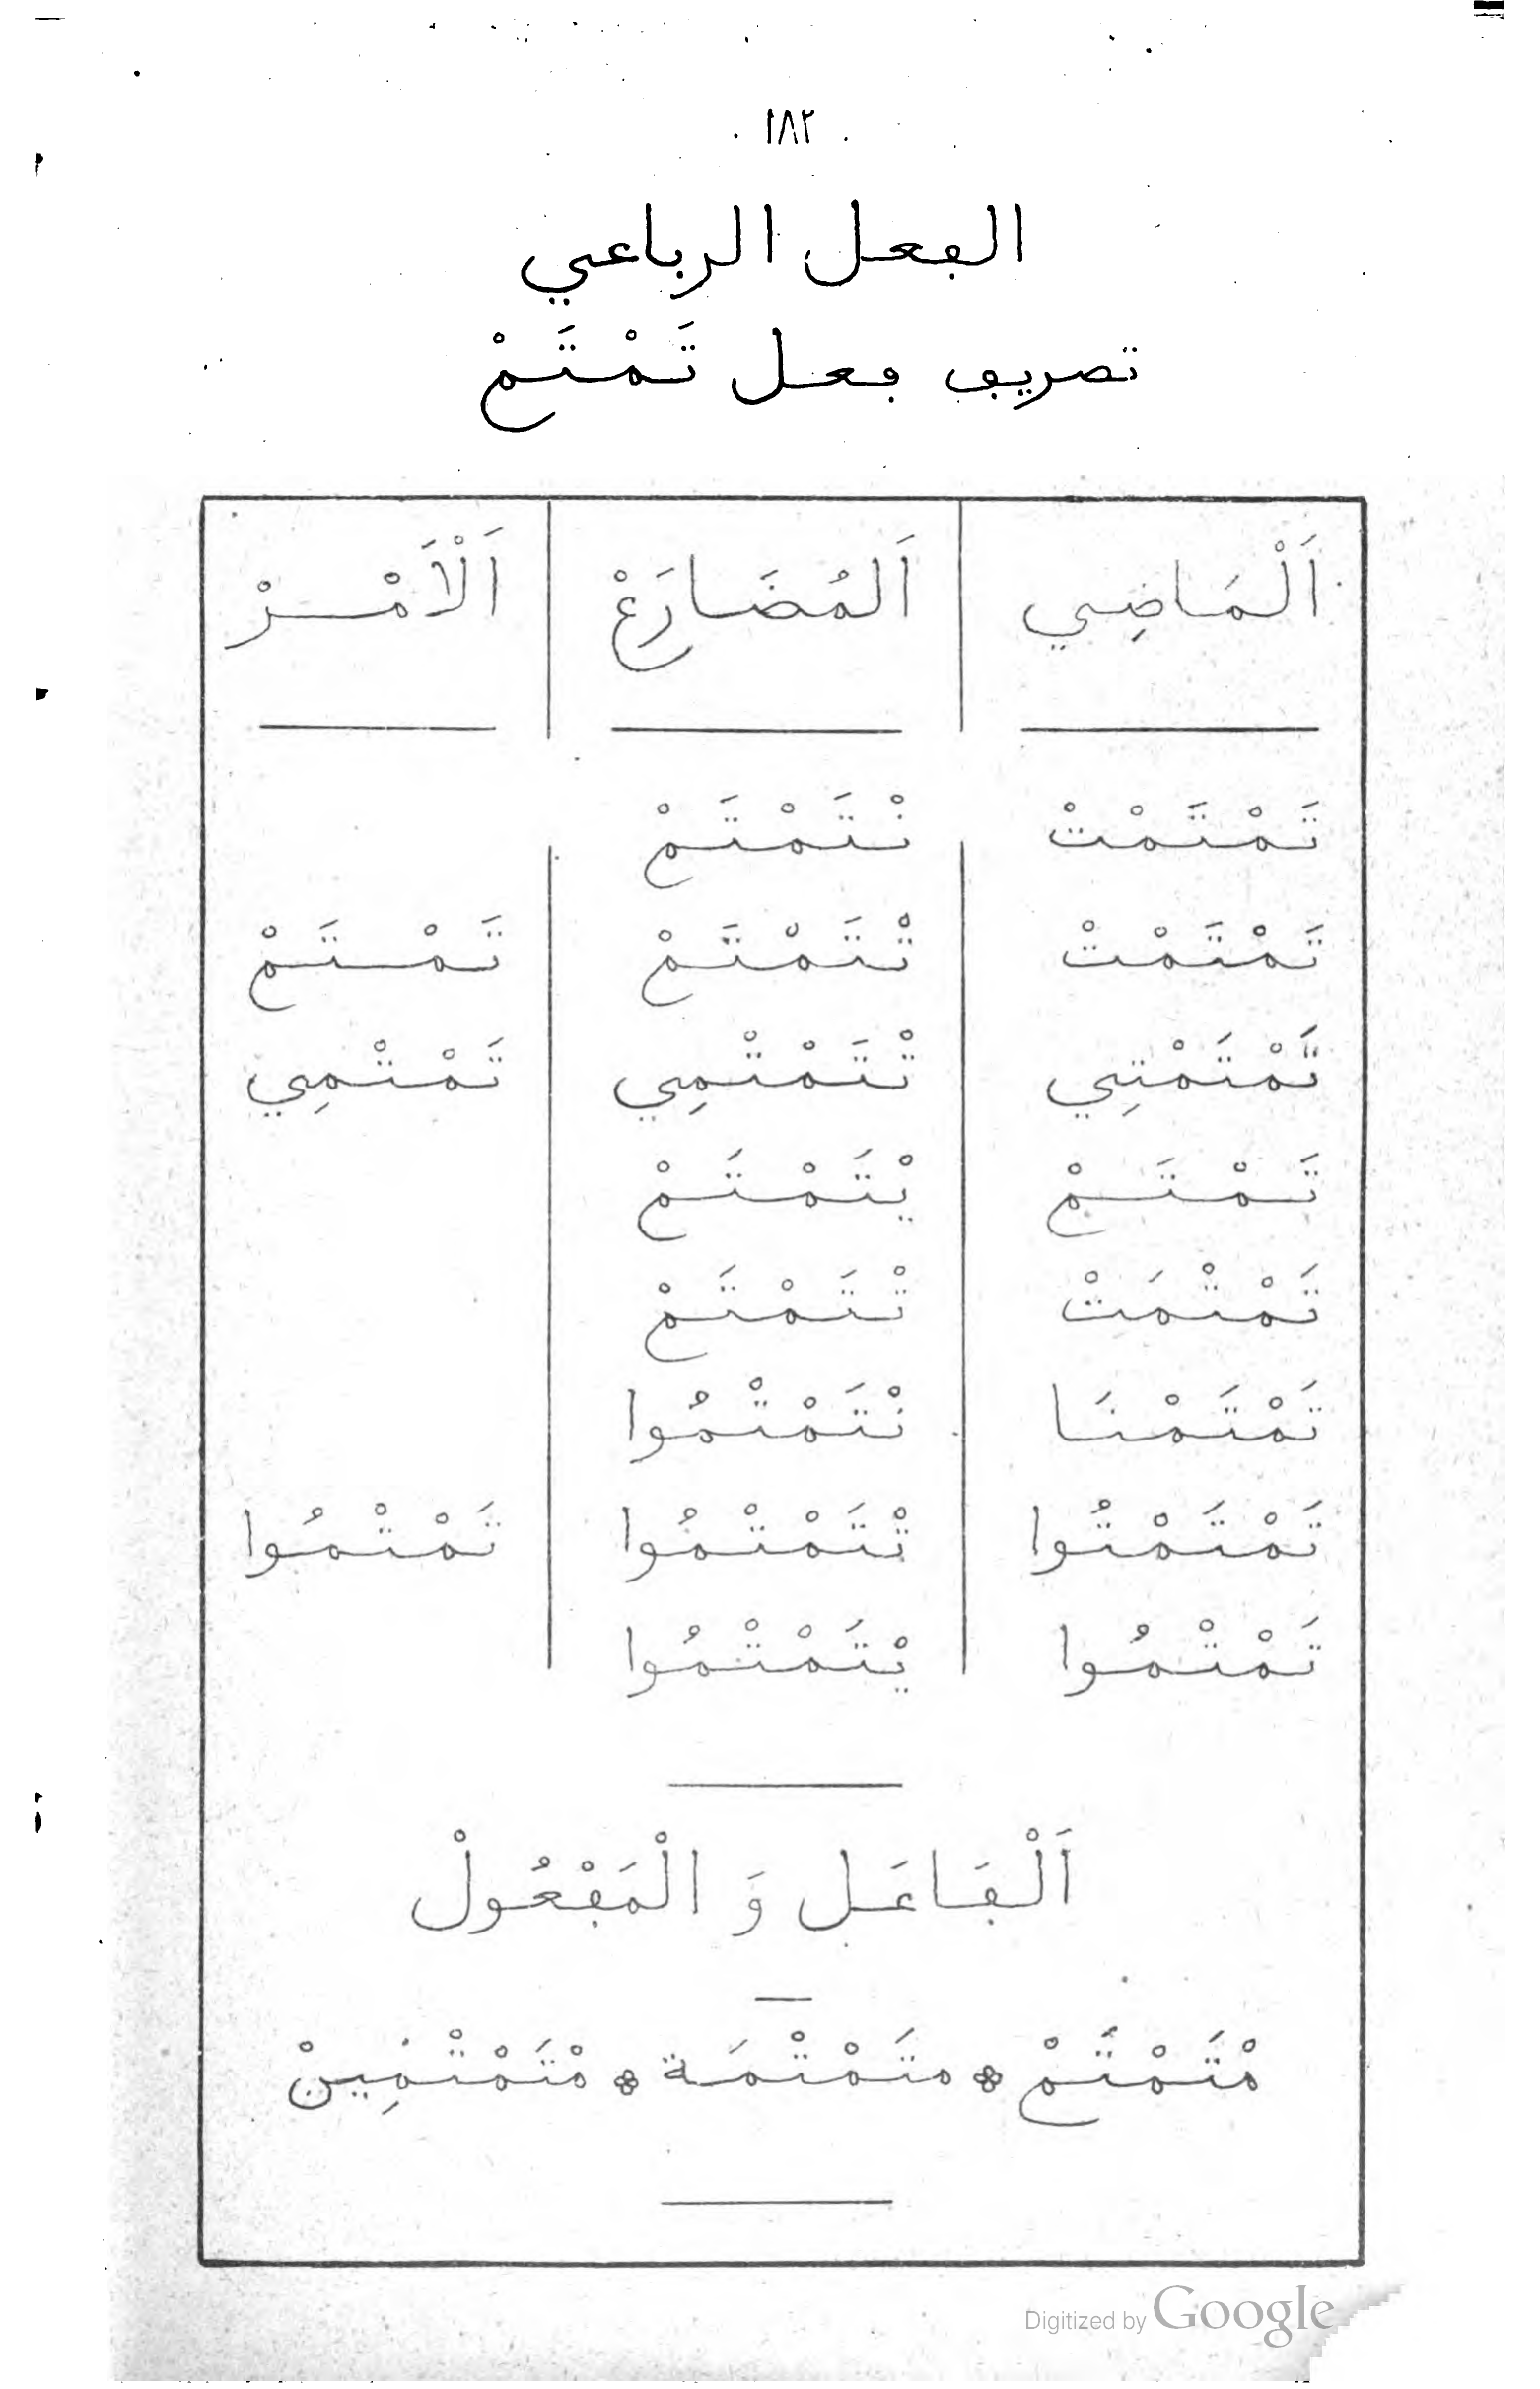 ١٨٢
الڢعل الرباعي
تصريڢ ڢعل تَمْتَمْ
اَلْمَاضِي اَلمُضَارَعْ اَلْأَمْرْ
تَمْتَمْتْ نْتَمْتَمْ
تَمْتَمْتْ تْتَمْتَمْ تَمْتَمْ
تَمْتَمْتِي تْتَمْتْمِي تَمْتْمِي
تَمْتَمْ يْتَمْتَمْ
تَمْتْمَتْ تْتَمْتَمْ
تَمْتَمْنَا نْتَمْتْمُوا
تَمْتَمْتُوا تْتَمْتْمُوا تَمْتْمُوا
تَمْتْمُوا يْتَمْتْمُوا
اَلْڢَاعَل وَ الْمَڢْعُولْ
مْتَمْتَمْ * متَمْتْمَة * مْتَمْتْمِينْ
Digitized by Google